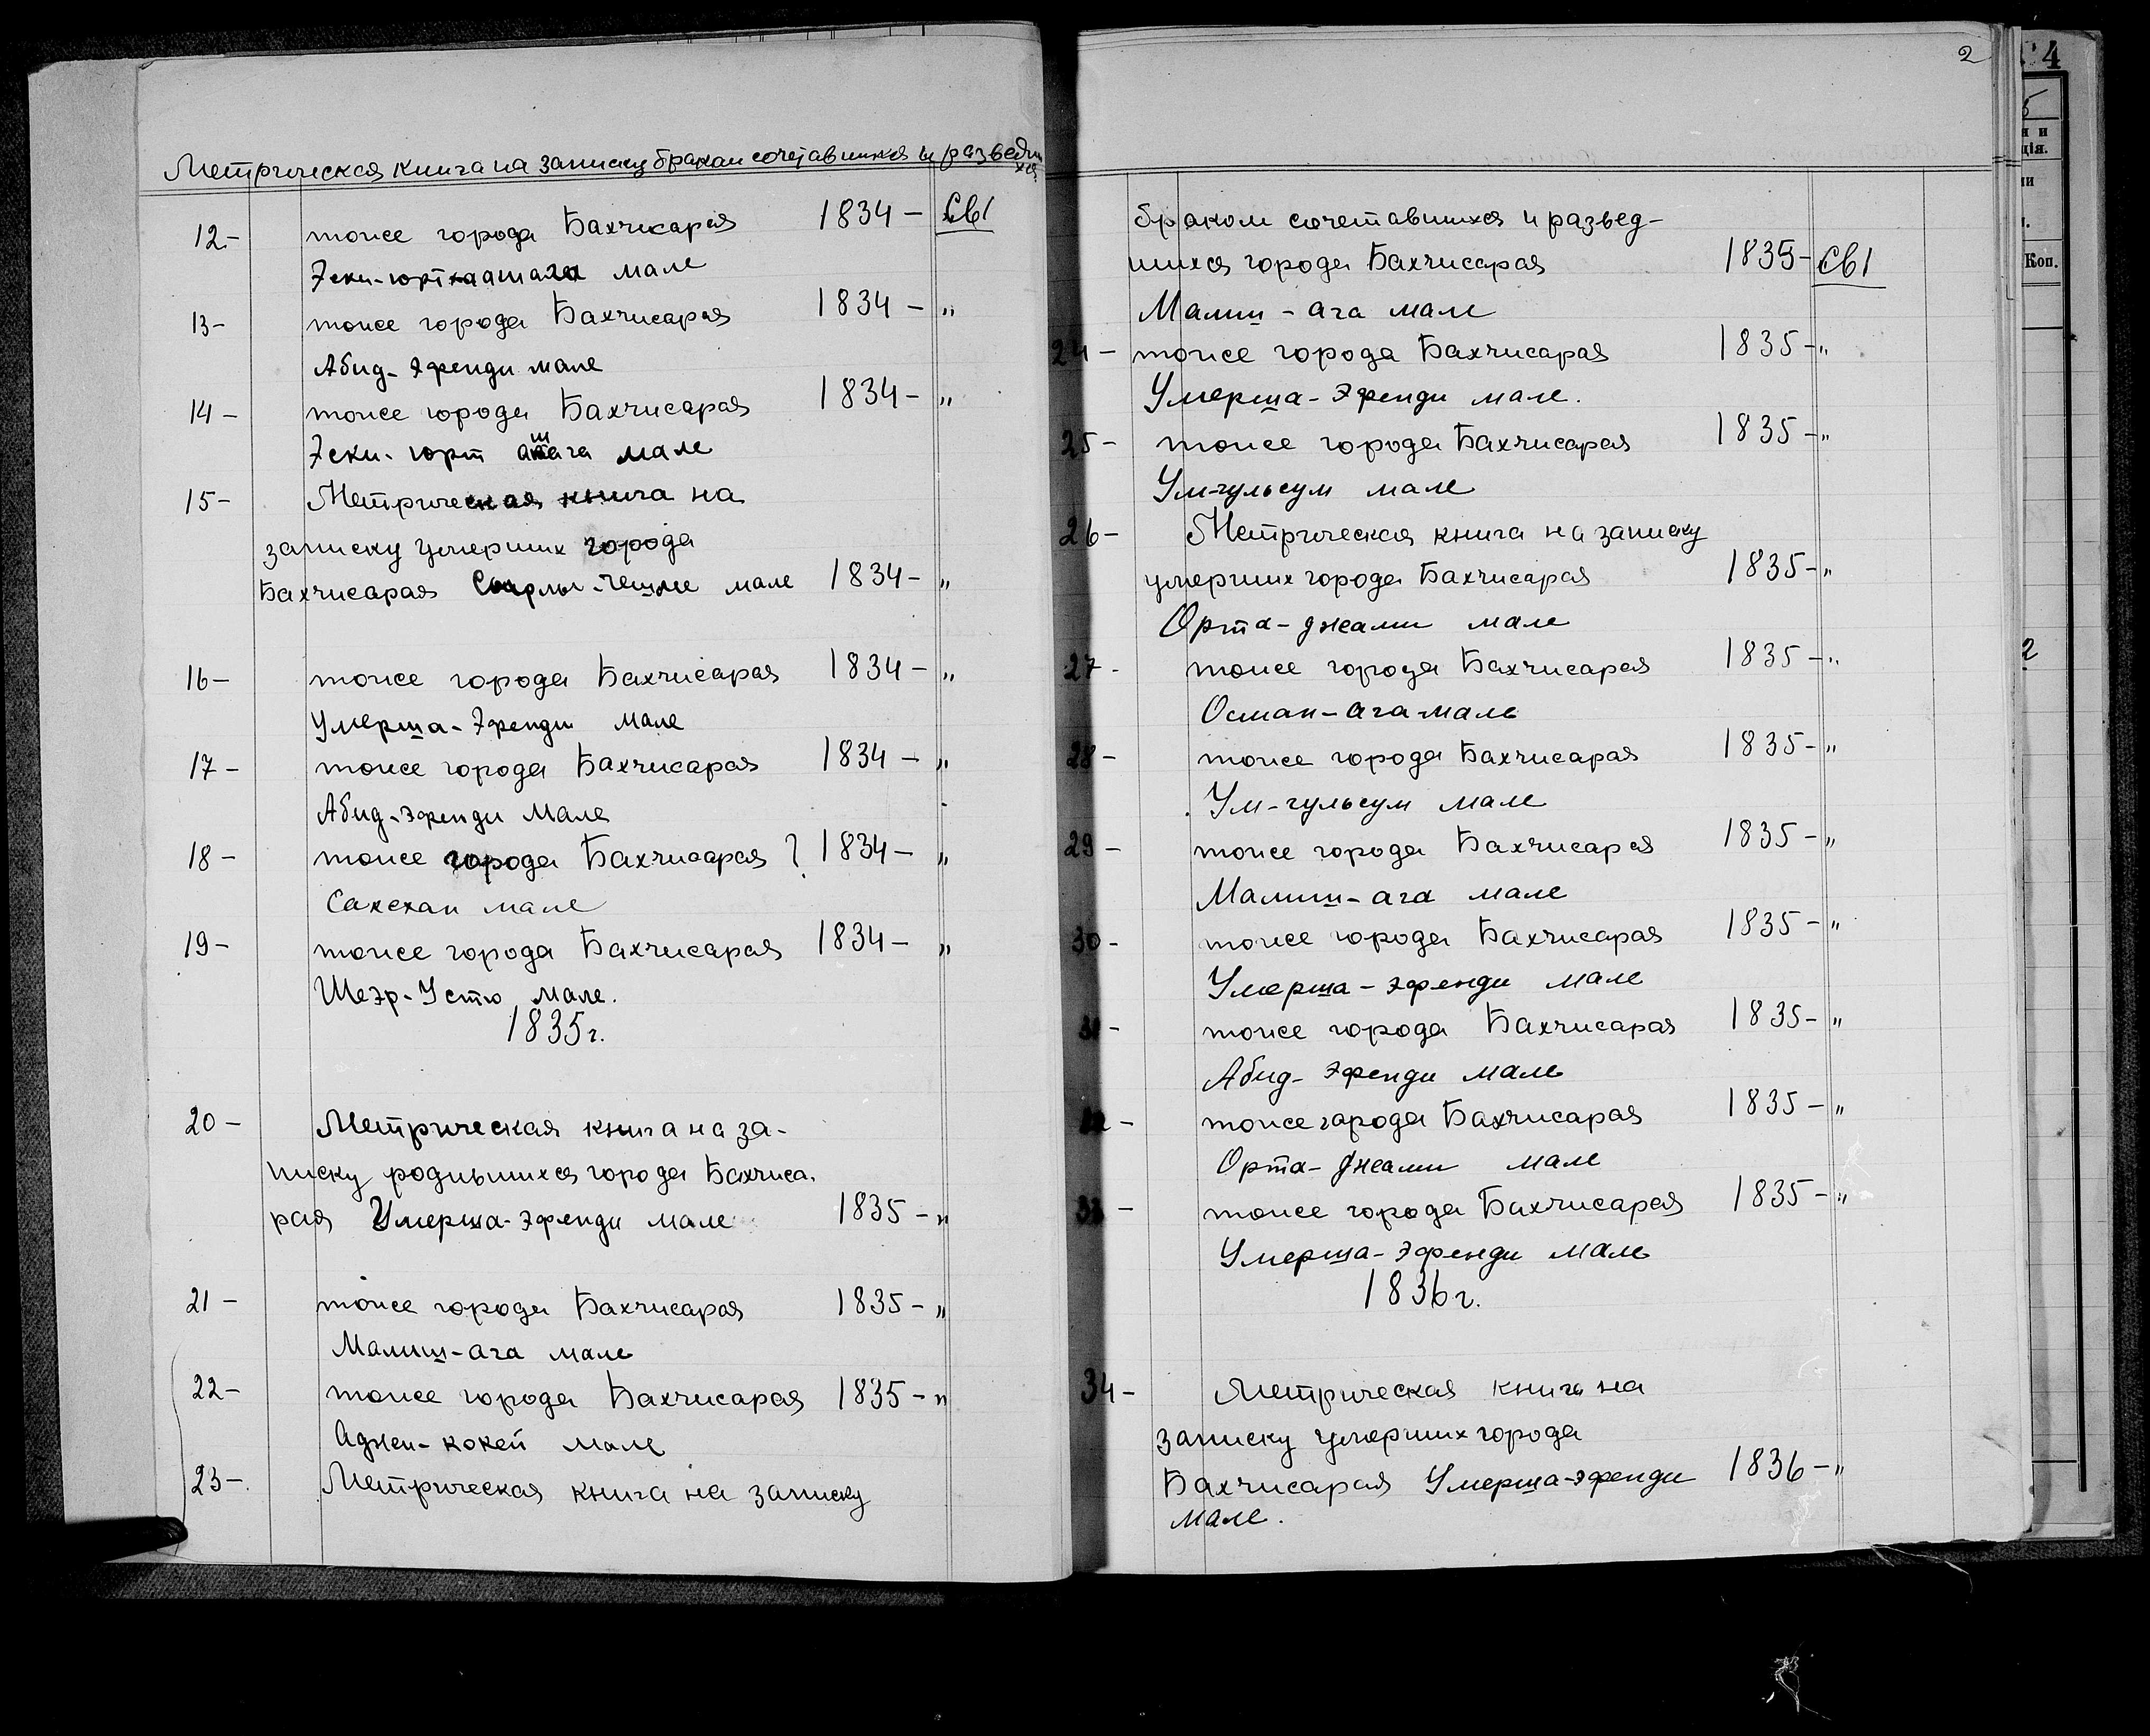 Метрическая книга на записку браком сочетавшихся и разведших
хся
12- тоже города Бахчисарая 1834- Св1
Эски-юрт ашага мале
13- тоже города Бахчисарая 1834- "
Абид-Эфенди мале
14- тоже города Бахчисарая 1834- "
Эски-юрт ашага мале
15- Метрическая книга на
записку умерших города
Бахчисарая Сырлы-чешме мале 1834- "
16- тоже города Бахчисарая 1834- "
Умерша-Эфенди мале
17- тоже города Бахчисарая 1834- "
Абид-эфенди мале
18- тоже города Бахчисарая ? 1834- "
Сакскан мале
19- тоже города Бахчисарая 1834- "
Шеэр-Усто мале.
1835г.
20- Метрическая книга на за-
писку родившихся города Бахчиса.
рая Умерша-эфенди мале 1835- "
21- тоже города Бахчисарая 1835- "
Малиш-ага мале
22- тоже города Бахчисарая 1835- "
Аджи-кокей мале
23- Метрическая книга на записку
2
браком сочетавшихся и развед-
шихся города Бахчисарая 1835- Св1
Малиш-ага мале
24- тоже города Бахчисарая 1835- "
Умерша-Эфенди мале.
25- тоже города Бахчисарая 1835- "
Ум-гульсум мале
26- Метрическая книга на записку
умерших города Бахчисарая 1835- "
Орта-джами мале
27- тоже города Бахчисарая 1835- "
Осман-ага мале
28- тоже города Бахчисарая 1835- "
Ум-гульсум мале
29- тоже города Бахчисарая 1835- "
Малиш-ага мале
30- тоже города Бахчисарая 1835- "
Умерша-эфенди мале
31- тоже города Бахчисарая 1835- "
Абид-эфенди мале
32- тоже города Бахчисарая 1835- "
Орта-джами мале
33- тоже города Бахчисарая 1835- "
Умерша-эфенди мале
1836г.
34- Метрическая книга на
записку умерших города
Бахчисарая Умерша-эфенди 1836- "
мале.
4
Коп.